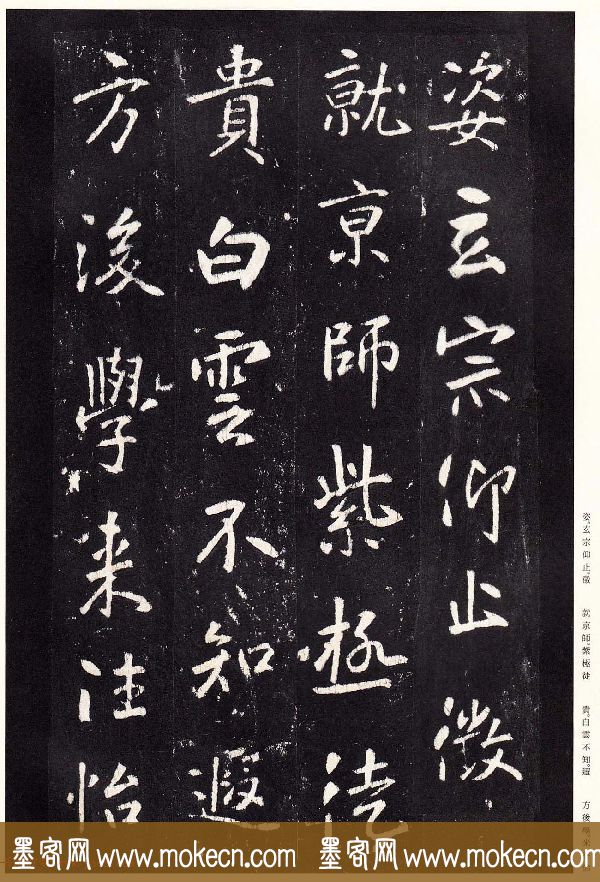 姿玄宗仰止徵
就京師紫極徒
貴白雲不知遐
方後學来往怡
姿。玄宗仰止。徵　就京師。紫極徒　貴。白雲不知。遐　方後學。
墨客网 www.mokecn.com 墨客网 www.mokecn.com